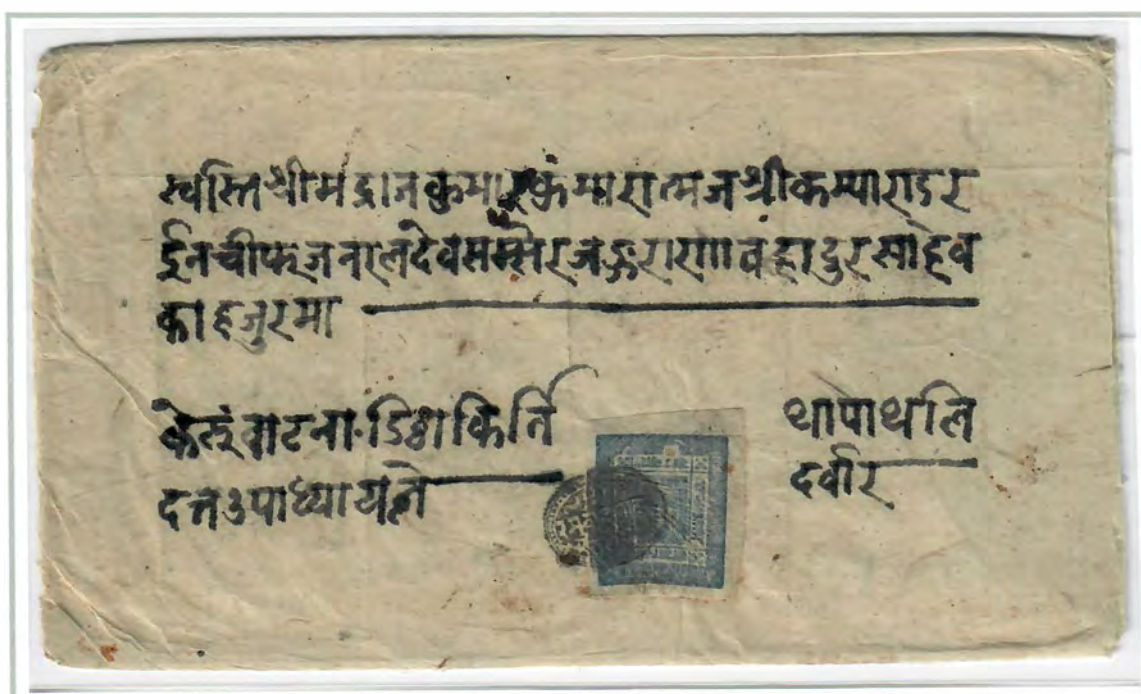 स्वस्ति श्रीमद्राजकुमारकुमारात्मज श्रीकम्याराडर
ईनचीफ जनरल देवसम्सेर जङ्गराणा वहादुर साहेव
का हजुरमा
वाटना डिठ्ठा किर्ति
दत्त उपाध्याय्ले
थापाथलि
दर्वार